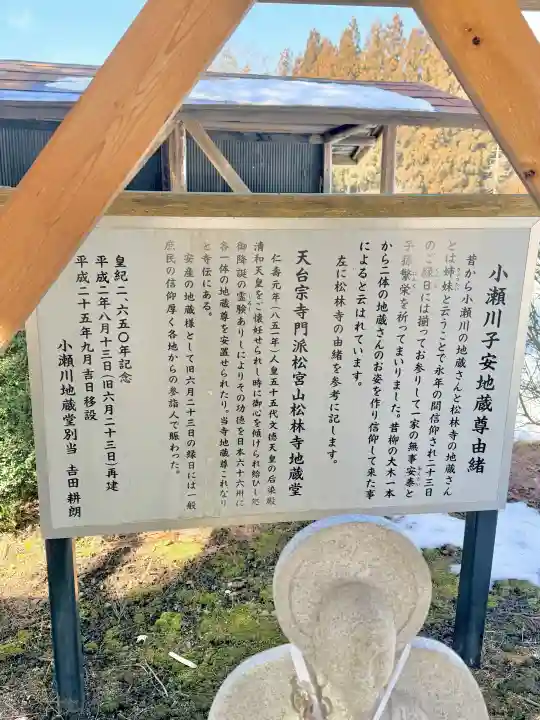 小瀬川子安地蔵尊由緒
昔から小瀬川の地蔵さんと松林寺の地蔵さん
とは姉妹と云うことで永年の間信仰され二十三日
のご縁日には揃ってお参りして一家の無事安泰と
子孫繁栄を祈ってまいりました。昔柳の大木一本
から二体の地蔵さんのお姿を作り信仰して来た事
によると云はれています。
左に松林寺の由緒を参考に記します。
天台宗寺門派松宮山松林寺地蔵堂
仁壽元年(八五一年)人皇五十五代文徳天皇の后染殿
清和天皇をご懐妊せられし時に御心を傾けられ給ひし処
御降誕の霊験ありしによりその功徳を日本六十六州に
各一体の地蔵尊を安置せられたり。当寺地蔵尊これなり
と寺伝にある。
安産の地蔵様として旧六月二十三日の縁日には一般
庶民の信仰厚く各地からの参詣人で賑わった。
皇紀二、六五〇年記念
平成二年八月十三日(旧六月二十三日)再建
平成二十五年九月吉日移設
小瀬川地蔵堂別当 吉田耕朗